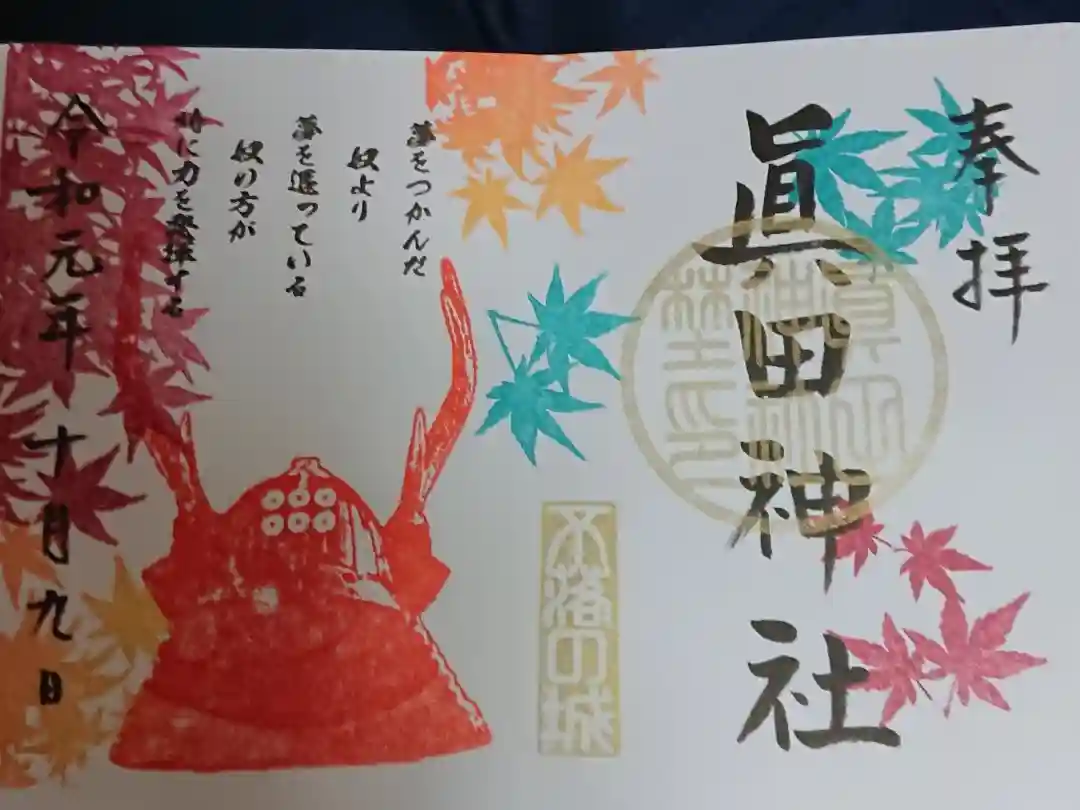 奉拝
眞田神社
不落の城
夢をつかんだ
奴より
夢を追っている
奴の方が
時に力を発揮する
令和元年 十月九日